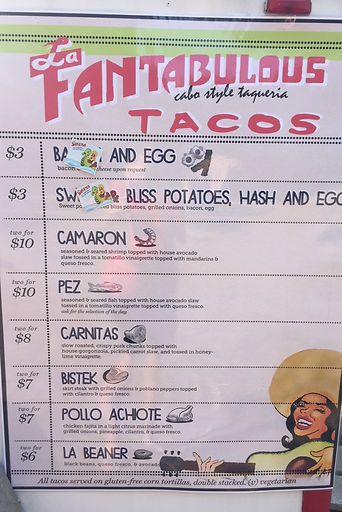 La
FANTABULOUS
cabo style taqueria
TACOS
$3
AND EGG
bacon cheese upon request
$3
BLISS POTATOES, HASH AND EGG
Sweet bliss potatoes, grilled onions, bacon, egg
two for
$10
CAMARON
seasoned & seared shrimp topped with house avocado
slaw tossed in a tomatillo vinaigrette topped with mandarins &
queso fresco.
two for
$10
PEZ
seasoned & seared fish topped with house avocado slaw
tossed in a tomatillo vinaigrette topped with queso fresco.
ask for the selection of the day
two for
$8
CARNITAS
slow roasted, crispy pork chunks topped with
house gorgonzola, pickled carrot slaw, and tossed in honey-
lime vinaigrette.
two for
$7
BISTEK
skirt steak with grilled onions & poblano peppers topped
with cilantro & queso fresco.
two for
$7
POLLO ACHIOTE
chicken fajita in a light citrus marinade with
grilled onions, pineapple, cilantro, & queso fresco.
two for
$6
LA BEANER
black beans, queso fresco, & avocado
All tacos served on gluten-free corn tortillas, double stacked. (v) vegetarian